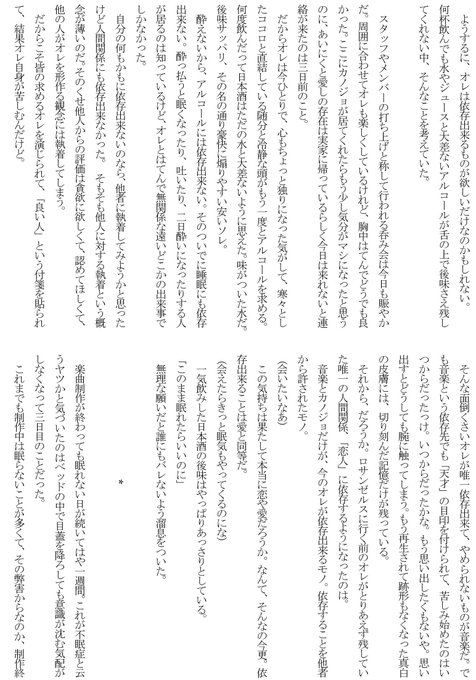 ようするに、オレは依存出来るものが欲しいだけなのかもしれない。
何杯飲んでも水やジュースと大差ないアルコールが舌の上で後味さえ残し
てくれない中、そんなことを考えていた。
スタッフやメンバーの打ち上げと称して行われる呑み会は今日も賑やか
だ。周囲に合わせてオレも楽しくしているけれど、胸中はてんでどうでも良
かった。ここにカノジョが居てくれたらもう少し気分がマシになったと思う
のに、あいにくと愛しの存在は実家に帰っているらしく今日は来れないと連
絡が来たのは三日前のこと。
だからオレは今ひとりで、心もちょっと独りになった気がして、寒々とし
たココロと直結している随分と冷静な頭がもう一度とアルコールを求める。
何度飲んだって日本酒はただの水と大差ないように思えた。味がついた水だ。
後味サッパリ、その名の通り豪快に煽りやすい安いソレ。
酔えないから、アルコールには依存出来ない。そのついでに睡眠にも依存
出来ない。酔っ払うと眠くなったり、吐いたり、二日酔いになったりする人
が居るのは知っているけど、オレとはてんで無関係な遠いどこかの出来事で
しかなかった。
自分の何もかもに依存出来ないのなら、他者に執着してみようかと思った
けど人間関係にも依存出来なかった。　そもそも他人に対する執着という概
念が薄いのだ。そのくせ他人からの評価は貪欲に欲しくて、認めてほしくて、
他の人がオレを形作る観念には執着してしまう。
だからこそ皆の求めるオレを演じられて、「良い人」という付箋を貼られ
て、結果オレ自身が苦しむんだけど。
そんな面倒くさいオレが唯一依存出来て、やめられないものが音楽だ。で
も音楽という依存先でも「天才」の目印を付けられて、苦しみ始めたのはい
つからだったっけ。いつからだったかな。もう思い出したくもないや。思い
出すとどうしても腕に触ってしまう。もう再生されて跡形もなくなった真白
の皮膚には、切り刻んだ記憶だけが残っている。
それから、だろうか。ロサンゼルスに行く前のオレがとりあえず残してい
た唯一の人間関係、「恋人」に依存するようになったのは。
音楽とカノジョだけが、今のオレが依存出来るモノ。依存することを他者
から許されたモノ。
(会いたいなあ)
この気持ちは果たして本当に恋や愛だろうか。なんて、そんなの今更。依
存出来ることは愛と同等だ。
(会えたらきっと眠気もやってくるのにな)
一気飲みした日本酒の後味はやっぱりあっさりとしている。
「このまま眠れたらいいのに」
無理な願いだと誰にもバレないよう溜息をついた。
*
楽曲制作が終わっても眠れない日が続いてはや一週間。これが不眠症と云
うヤツかと気づいたのはベッドの中で目蓋を降ろしても意識が沈む気配が
しなくなって三日目のことだった。
これまでも制作中は眠らないことが多くて、その弊害からなのか、制作終